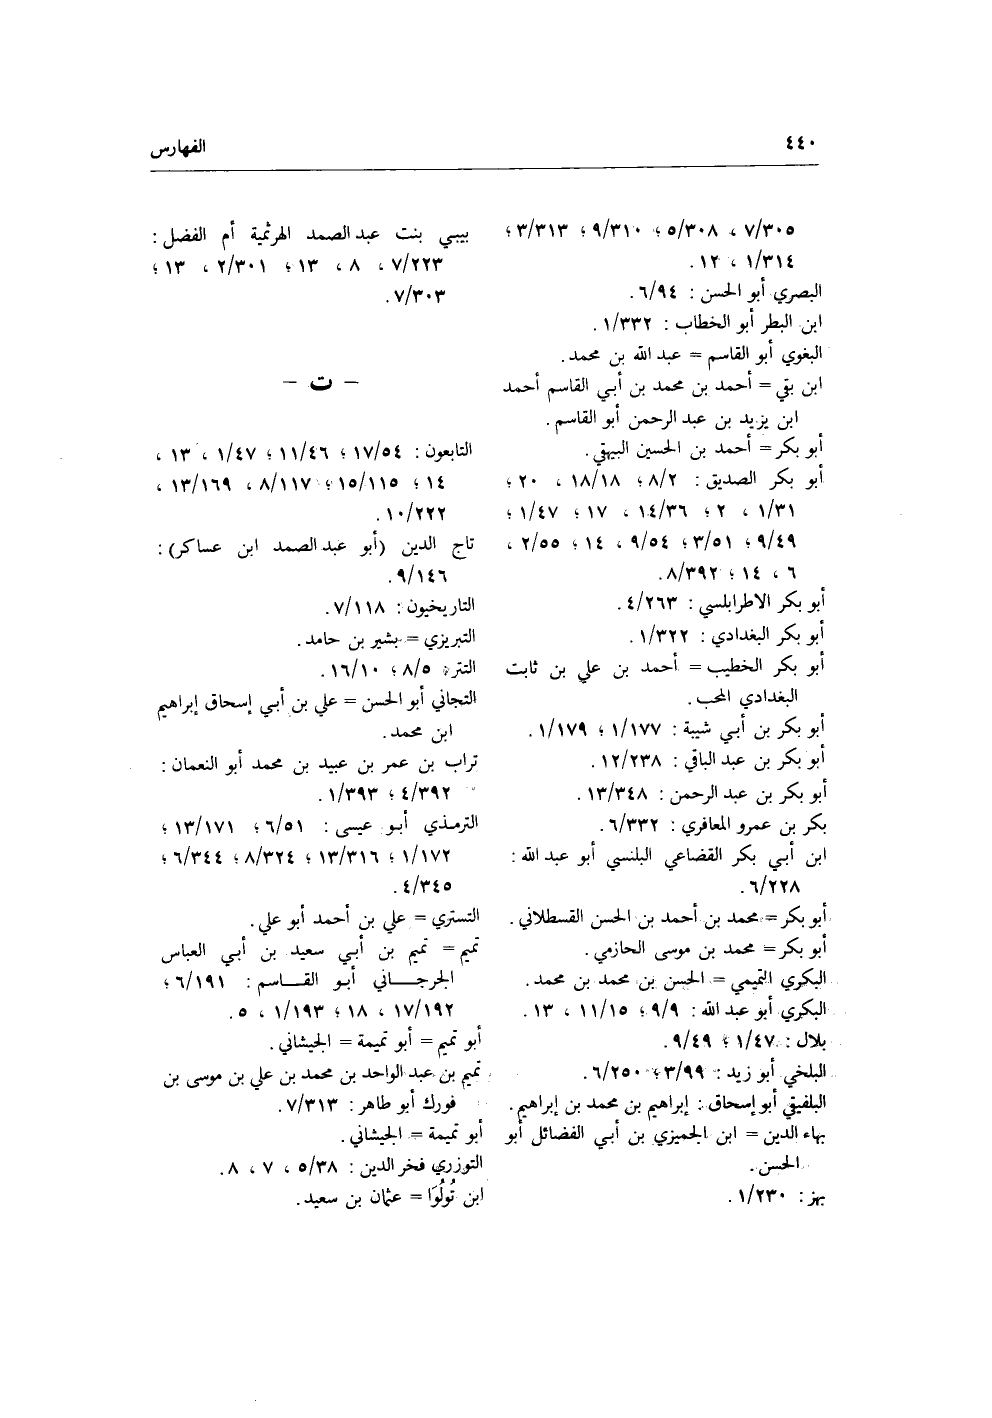 ٤٤٠
الفهارس
٧/٣٠٥ ، ٥/٣٠٨ ؛ ٩/٣١٠ ؛ ٣/٣١٣ ؛
١/٣١٤ ، ١٢ .
البصري أبو الحسن : ٦/٩٤ .
ابن البطر أبو الخطاب : ١/٣٣٢ .
البغوي أبو القاسم = عبد الله بن محمد .
ابن بقي = أحمد بن محمد بن أبي القاسم أحمد
ابن يزيد بن عبد الرحمن أبو القاسم .
أبو بكر = أحمد بن الحسين البيهقي .
أبو بكر الصديق : ٨/٢ ؛ ١٨/١٨ ، ٢٠ ؛
١/٣١ ، ٢ ؛ ١٤/٣٦ ، ١٧ ؛ ١/٤٧ ؛
٩/٤٩ ؛ ٣/٥١ ؛ ٩/٥٤ ، ١٤ ؛ ٢/٥٥ ،
٦ ، ١٤ ؛ ٨/٣٩٢ .
أبو بكر الاطرابلسي : ٤/٢٦٣ .
أبو بكر البغدادي : ١/٣٢٢ .
أبو بكر الخطيب = أحمد بن علي بن ثابت
البغدادي المحب .
أبو بكر بن أبي شيبة : ١/١٧٧ ؛ ١/١٧٩ .
أبو بكر بن عبد الباقي : ١٢/٢٣٨ .
أبو بكر بن عبد الرحمن : ١٣/٣٤٨ .
بكر بن عمرو المعافري : ٦/٣٣٢ .
ابن أبي بكر القضاعي البلنسي أبو عبد الله :
٦/٢٢٨ .
أبو بكر = محمد بن أحمد بن الحسن القسطلاني .
أبو بكر = محمد بن موسى الحازمي .
البكري التميمي = الحسن بن محمد بن محمد .
البكري أبو عبد الله : ٩/٩ ؛ ١١/١٥ ، ١٣ .
بلال : ١/٤٧ ؛ ٩/٤٩ .
البلخي أبو زيد : ٣/٩٩ ؛ ٦/٢٥٠ .
البلفيقي أبو إسحاق : إبراهيم بن محمد بن إبراهيم .
بهاء الدين = ابن الجميزي بن أبي الفضائل أبو
الحسن .
بهز : ١/٢٣٠ .
بيبي بنت عبد الصمد الهرثمية أم الفضل :
٧/٢٢٣ ، ٨ ، ١٣ ؛ ٢/٣٠١ ، ١٣ ؛
٧/٣٠٣ .
– ت –
التابعون : ١٧/٥٤ ؛ ١١/٤٦ ؛ ١/٤٧ ، ١٣ ،
١٤ ؛ ١٥/١١٥ ؛ ٨/١١٧ ، ١٣/١٦٩ ،
١٠/٢٢٢ .
تاج الدين (أبو عبد الصمد ابن عساكر) :
٩/١٤٦ .
التاريخيون : ٧/١١٨ .
التبريزي = بشير بن حامد .
التتر : ٨/٥ ؛ ١٦/١٠ .
التجاني أبو الحسن = علي بن أبي إسحاق إبراهيم
ابن محمد .
تراب بن عمر بن عبيد بن محمد أبو النعمان :
٤/٣٩٢ ؛ ١/٣٩٣ .
الترمذي أبو عيسى : ٦/٥١ ؛ ١٣/١٧١ ؛
١/١٧٢ ؛ ١٣/٣١٦ ؛ ٨/٣٢٤ ؛ ٦/٣٤٤ ؛
٤/٣٤٥ .
التستري = علي بن أحمد أبو علي .
تميم = تميم بن أبي سعيد بن أبي العباس
الجرجاني أبو القاسم : ٦/١٩١ ؛
١٧/١٩٢ ، ١٨ ؛ ١/١٩٣ ، ٥ .
أبو تميم = أبو تميمة = الجيشاني .
تميم بن عبد الواحد بن محمد بن علي بن موسى بن
فورك أبو طاهر : ٧/٣١٣ .
أبو تميمة = الجيشاني .
التوزري فخر الدين : ٥/٣٨ ، ٧ ، ٨ .
ابن تُولُوَا = عثمان بن سعيد .